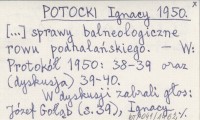 POTOCKI Ignacy 1950. x
[...] sprawy balneologiczne
rowu podhalańskiego. - W:
Protokół 1950: 38-39 oraz
(dyskusja) 39-40.
W dyskusji zabrali głos:
Józef Gołąb (s.39), Ignacy